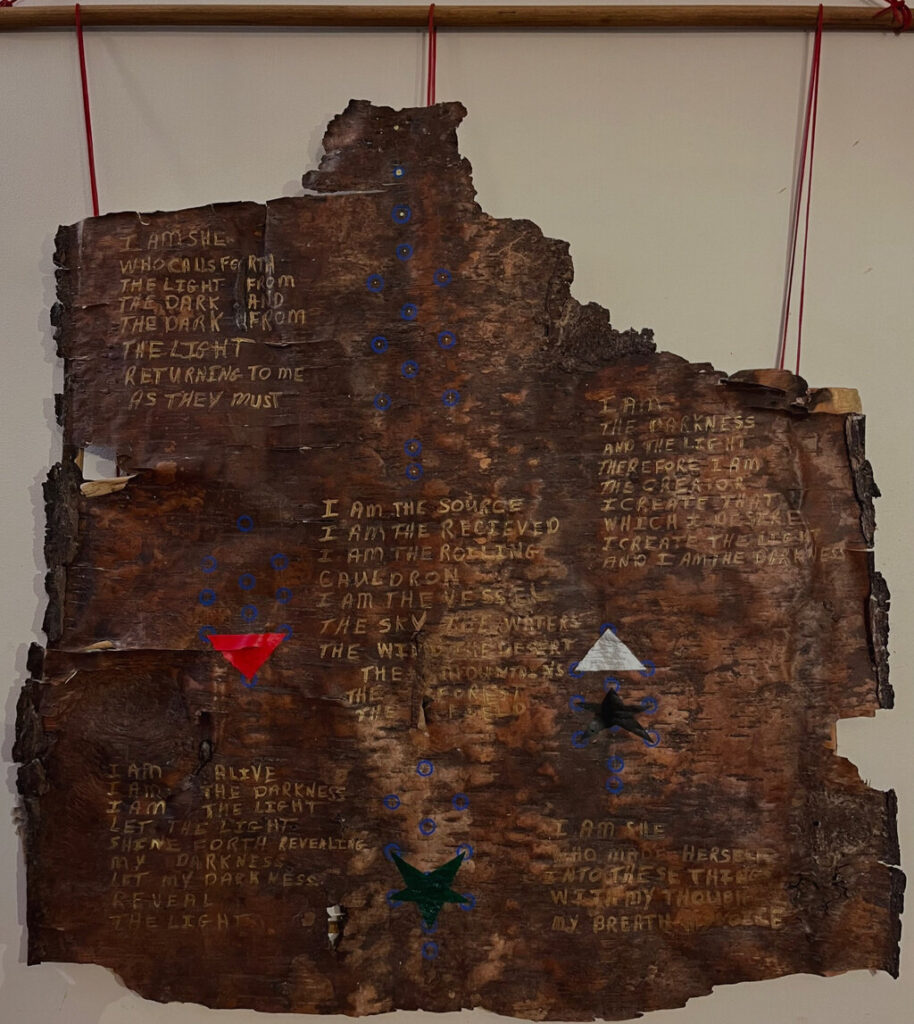 I AM SHE
WHO CALLS FORTH
THE LIGHT FROM
THE DARK AND
THE DARK FROM
THE LIGHT
RETURNING TO ME
AS THEY MUST
I AM
THE DARKNESS
AND THE LIGHT
THEREFORE I AM
THE CREATOR
I CREATE THAT
WHICH I DESIRE
I CREATE THE LIGHT
AND I AM THE DARKNESS
I AM THE SOURCE
I AM THE RECIEVED
I AM THE ROILING
CAULDRON
I AM THE VESSEL
THE SKY THE WATERS
THE WIND THE DESERT
THE MOUNTAINS
THE FOREST
THE FIELD
I AM ALIVE
I AM THE DARKNESS
I AM THE LIGHT
LET THE LIGHT
SHINE FORTH REVEALING
MY DARKNESS
LET MY DARKNESS
REVEAL
THE LIGHT
I AM SHE
WHO MADE HERSELF
INTO THESE THING
WITH MY THOUGH
MY BREATH